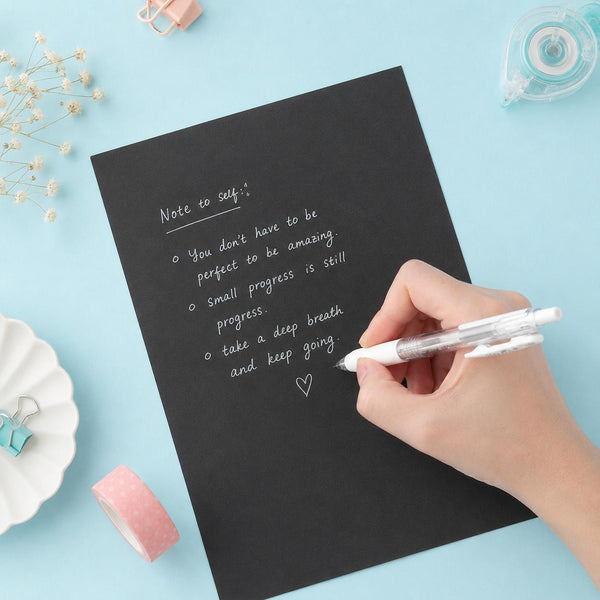 Note to self:
o You don't have to be
perfect to be amazing.
o small progress is still
progress.
o take a deep breath
and keep going.
♡